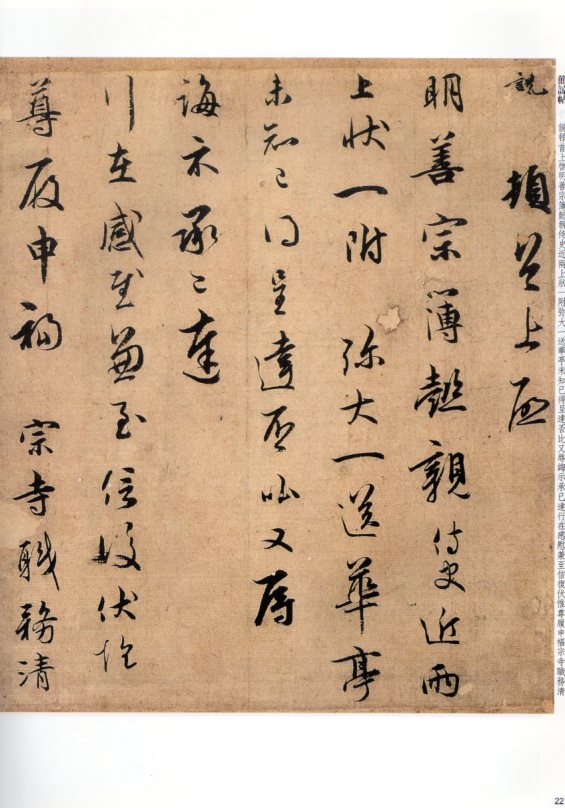 說
頓首上啓
明善宗簿懿親侍史近兩
上狀一附 弥大一送華亭
未知已得呈達否比又辱
誨示承已達
行在感慰兼至信後伏惟
尊履申福 宗寺職務清
說頓首上啓明善宗簿懿親侍史近兩上狀一附弥大一送華亭未知已得呈達否比又辱誨示承已達行在感慰兼至信後伏惟尊履申福宗寺職務清
22